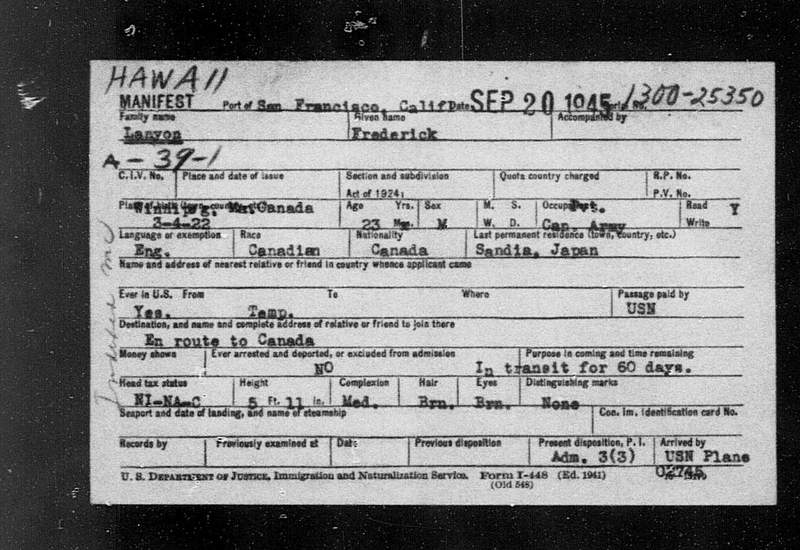 HAWAII
MANIFEST Port of San Francisco, Calif Date SEP 20 1945 Serial No. 1300-25350
Family name Given name Accompanied by
Lanyon Frederick
A-39-1
C.I.V. No. Place and date of issue Section and subdivision Quota country charged R.P. No.
Act of 1924: P.V. No.
Age Yrs. Sex M. S. Pvt. Read Y
Winnipeg, Man. Canada
3-4-22 23 Mos. M W. D. Can. Army Write
Language or exemption Race Nationality Last permanent residence (town, country, etc.)
Eng. Canadian Canada Sandia, Japan
Name and address of nearest relative or friend in country whence applicant came
Ever in U.S. From To Where Passage paid by
Yes. Temp. USN
Destination, and name and complete address of relative or friend to join there
En route to Canada
Money shown Ever arrested and deported, or excluded from admission Purpose in coming and time remaining
NO In transit for 60 days.
Head tax status Height Complexion Hair Eyes Distinguishing marks
NI-NA-C 5 Ft. 11 in. Med. Brn. Brn. None
Seaport and date of landing, and name of steamship Con. Im. Identification card No.
Records by Previously examined at Date Previous disposition Present disposition, P. I. Arrived by
Adm. 3(3) USN Plane
U. S. DEPARTMENT OF JUSTICE, Immigration and Naturalization Service. Form I-448 (Ed. 1941)
(Old 548)